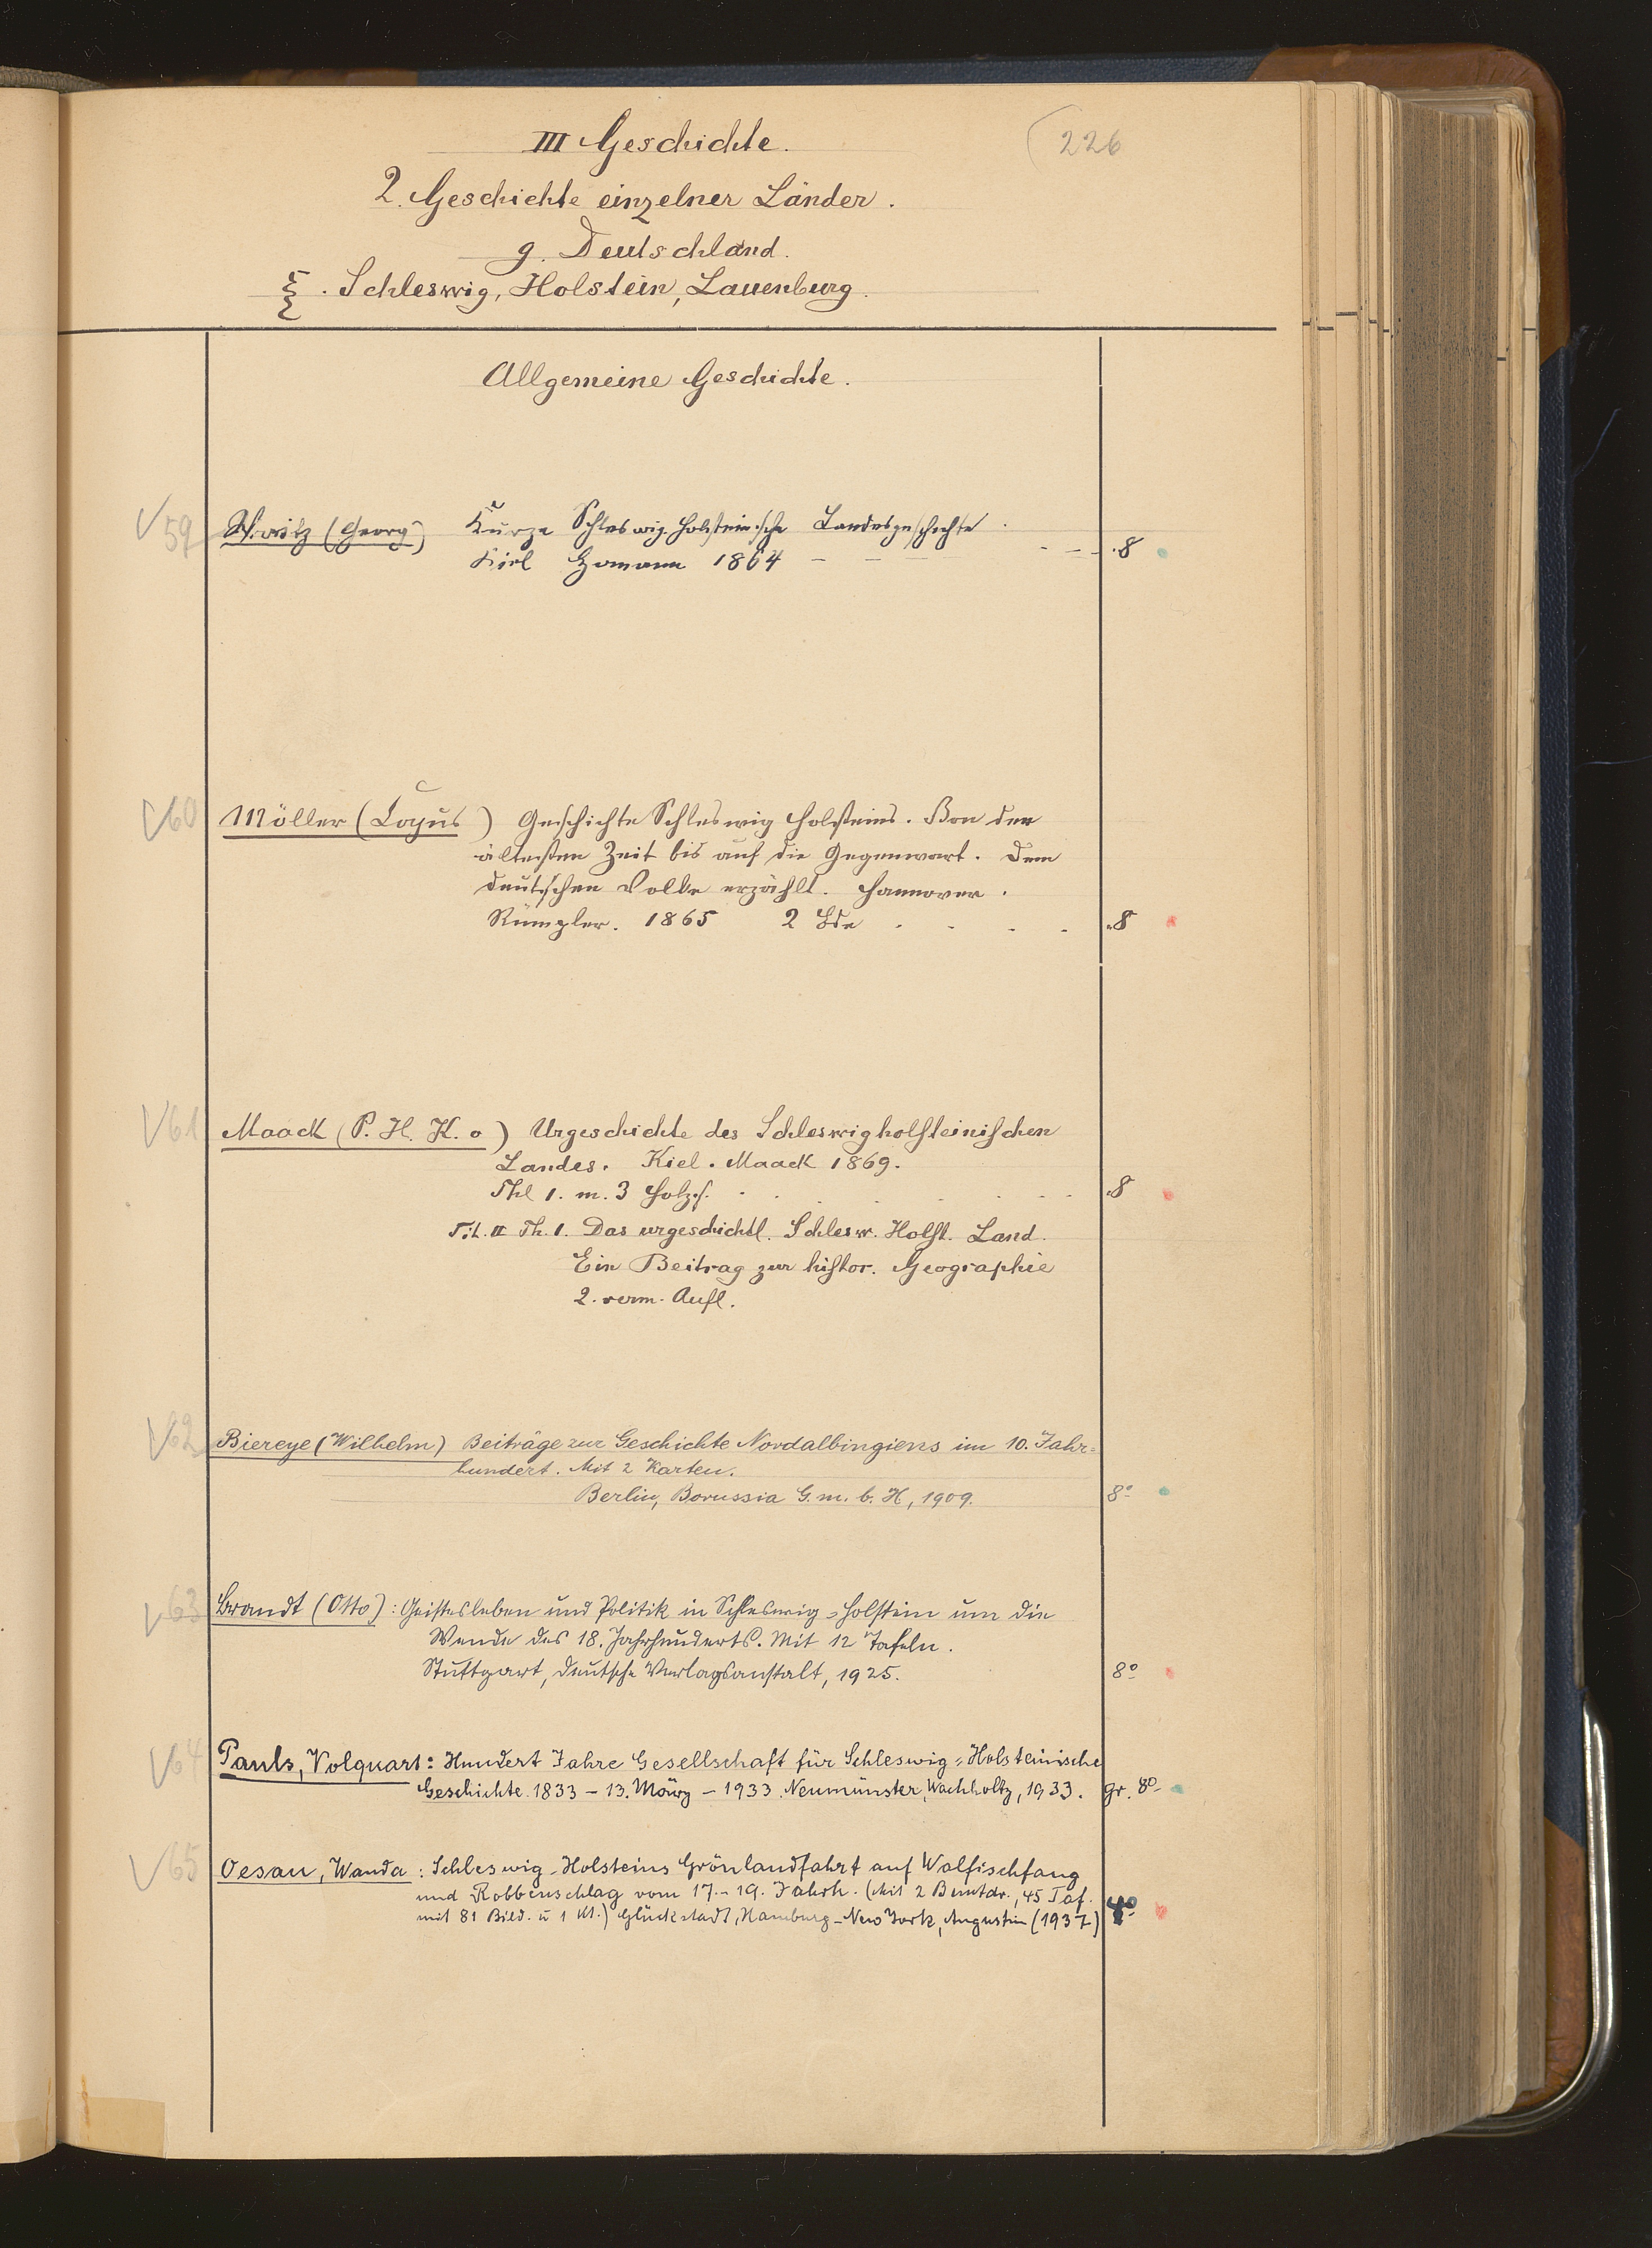 226
III Geschichte.
2. Geschichte einzelner Länder.
g. Deutschland.
ξ. Schleswig, Holstein, Lauenburg.
Allgemeine Geschichte.
59 (Georg) Kurze Schleswig-holsteinische Landesgeschichte.
Kiel Homann 1864 - - - - - 8
60 Möller (Cajus) Geschichte Schleswig Holsteins. Von den
ältesten Zeit bis auf die Gegenwart. Dem
deutschen Volke erzählt. Hannover.
Rümpler. 1865 2 Bde . . . . 8
61 Maack (P. H. K. v) Urgeschichte des Schleswigholsteinischen
Landes. Kiel. Maack 1869.
Thl 1. m. 3 Holzs. . . . . . . 8
Tit. II Th. 1. Das urgeschichtl. Schlesw. Holst. Land.
Ein Beitrag zur histor. Geographie
2. verm. Aufl.
62 Biereye (Wilhelm) Beiträge zur Geschichte Nordalbingiens im 10. Jahr=
hundert. Mit 2 Karten.
Berlin, Borussia G. m. b. H, 1909. 8°
63 Brandt (Otto): Geistesleben und Politik in Schleswig=Holstein um die
Wende des 18. Jahrhunderts. Mit 12 Tafeln.
Stuttgart, Deutsche Verlagsanstalt, 1925. 8°
64 Pauls, Volquart: Hundert Jahre Gesellschaft für Schleswig=Holsteinische
Geschichte 1833 - 13. März - 1933. Neumünster, Wachholtz, 1933. gr. 8°
65 Oesau, Wanda: Schleswig-Holsteins Grönlandfahrt auf Walfischfang
und Robbenschlag vom 17.-19. Jahrh. (Mit 2 Buntdr., 45 Taf.
mit 81 Bild. u 1 Kt.) Glückstadt, Hamburg-New York, Augustin (1937) 4°